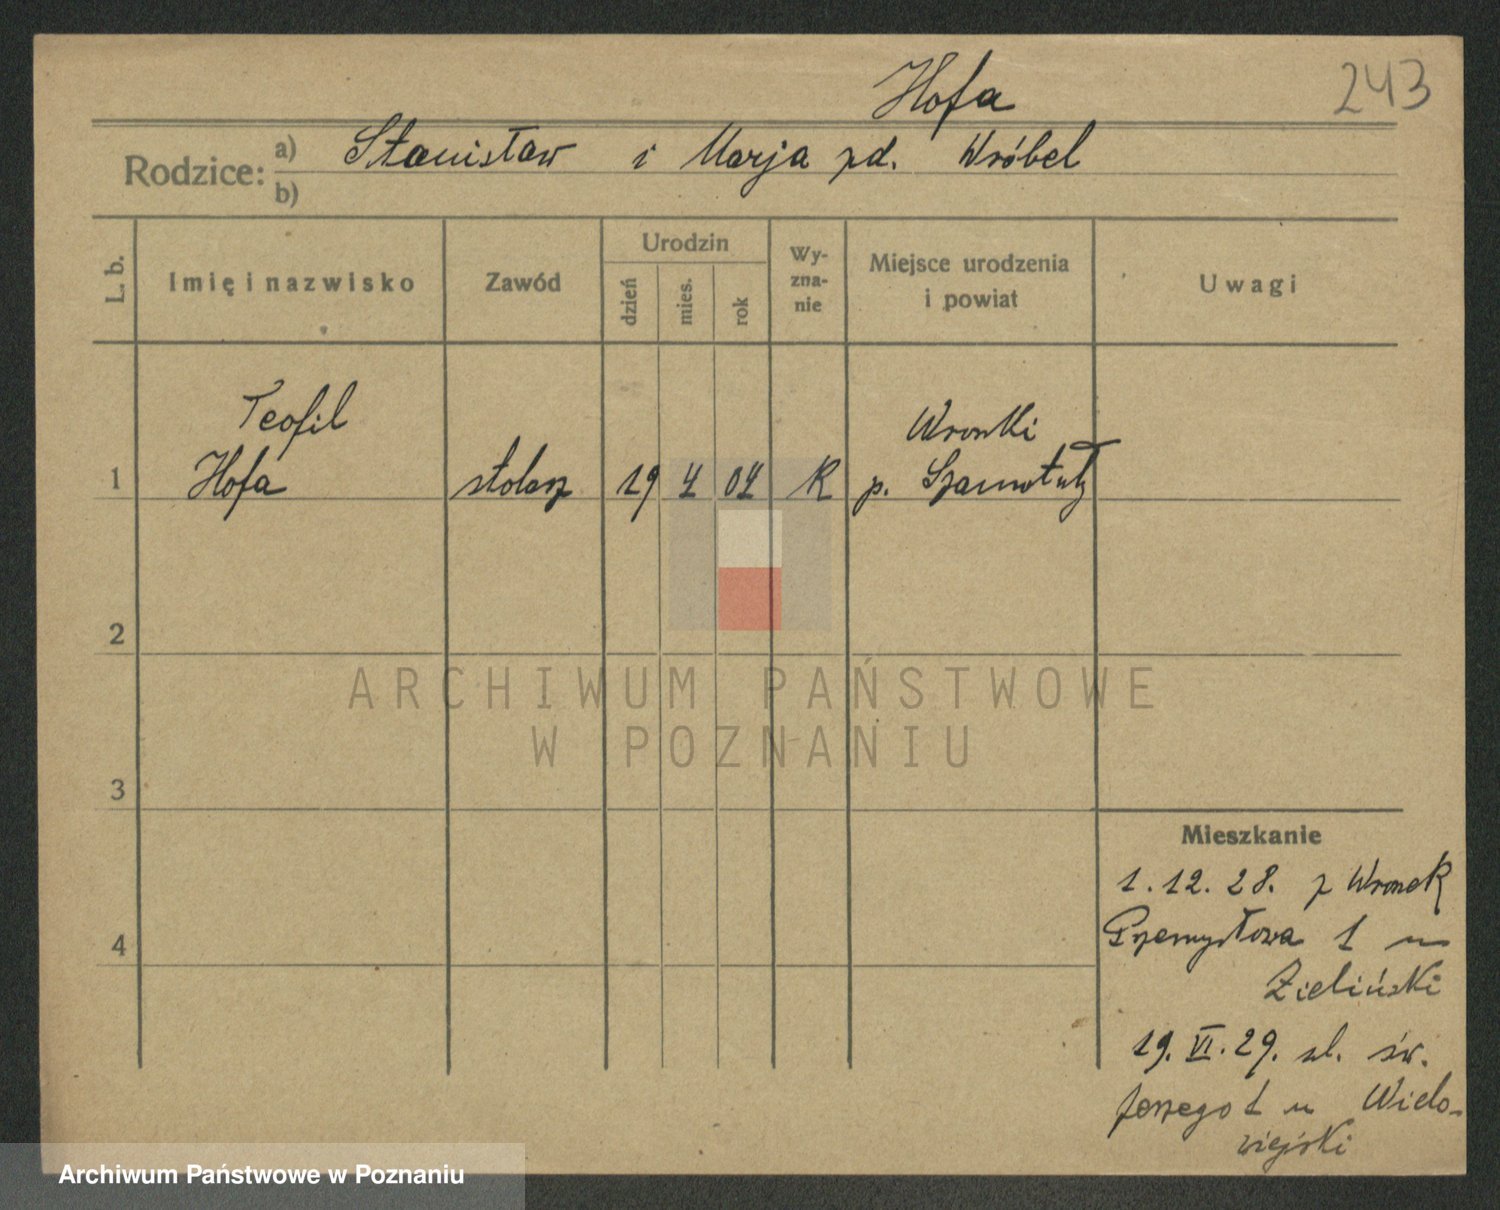 Hofa
243
Rodzice: a) Stanisław i Marja zd. Wróbel
b)
L. b. Imię i nazwisko Zawód Urodzin dzień mies. rok Wy-zna-nie Miejsce urodzenia i powiat Uwagi
Teofil Wronki
1 Hofa stolarz 19 4 04 R p. Szamotuły
2
ARCHIWUM PAŃSTWOWE
W POZNANIU
3
Mieszkanie
1.12.28. z Wronek
4 Przemysłowa 1 u
Zieliński
19. VI. 29. ul. św.
Jerzego 1 u Wielo-
wiejski
Archiwum Państwowe w Poznaniu